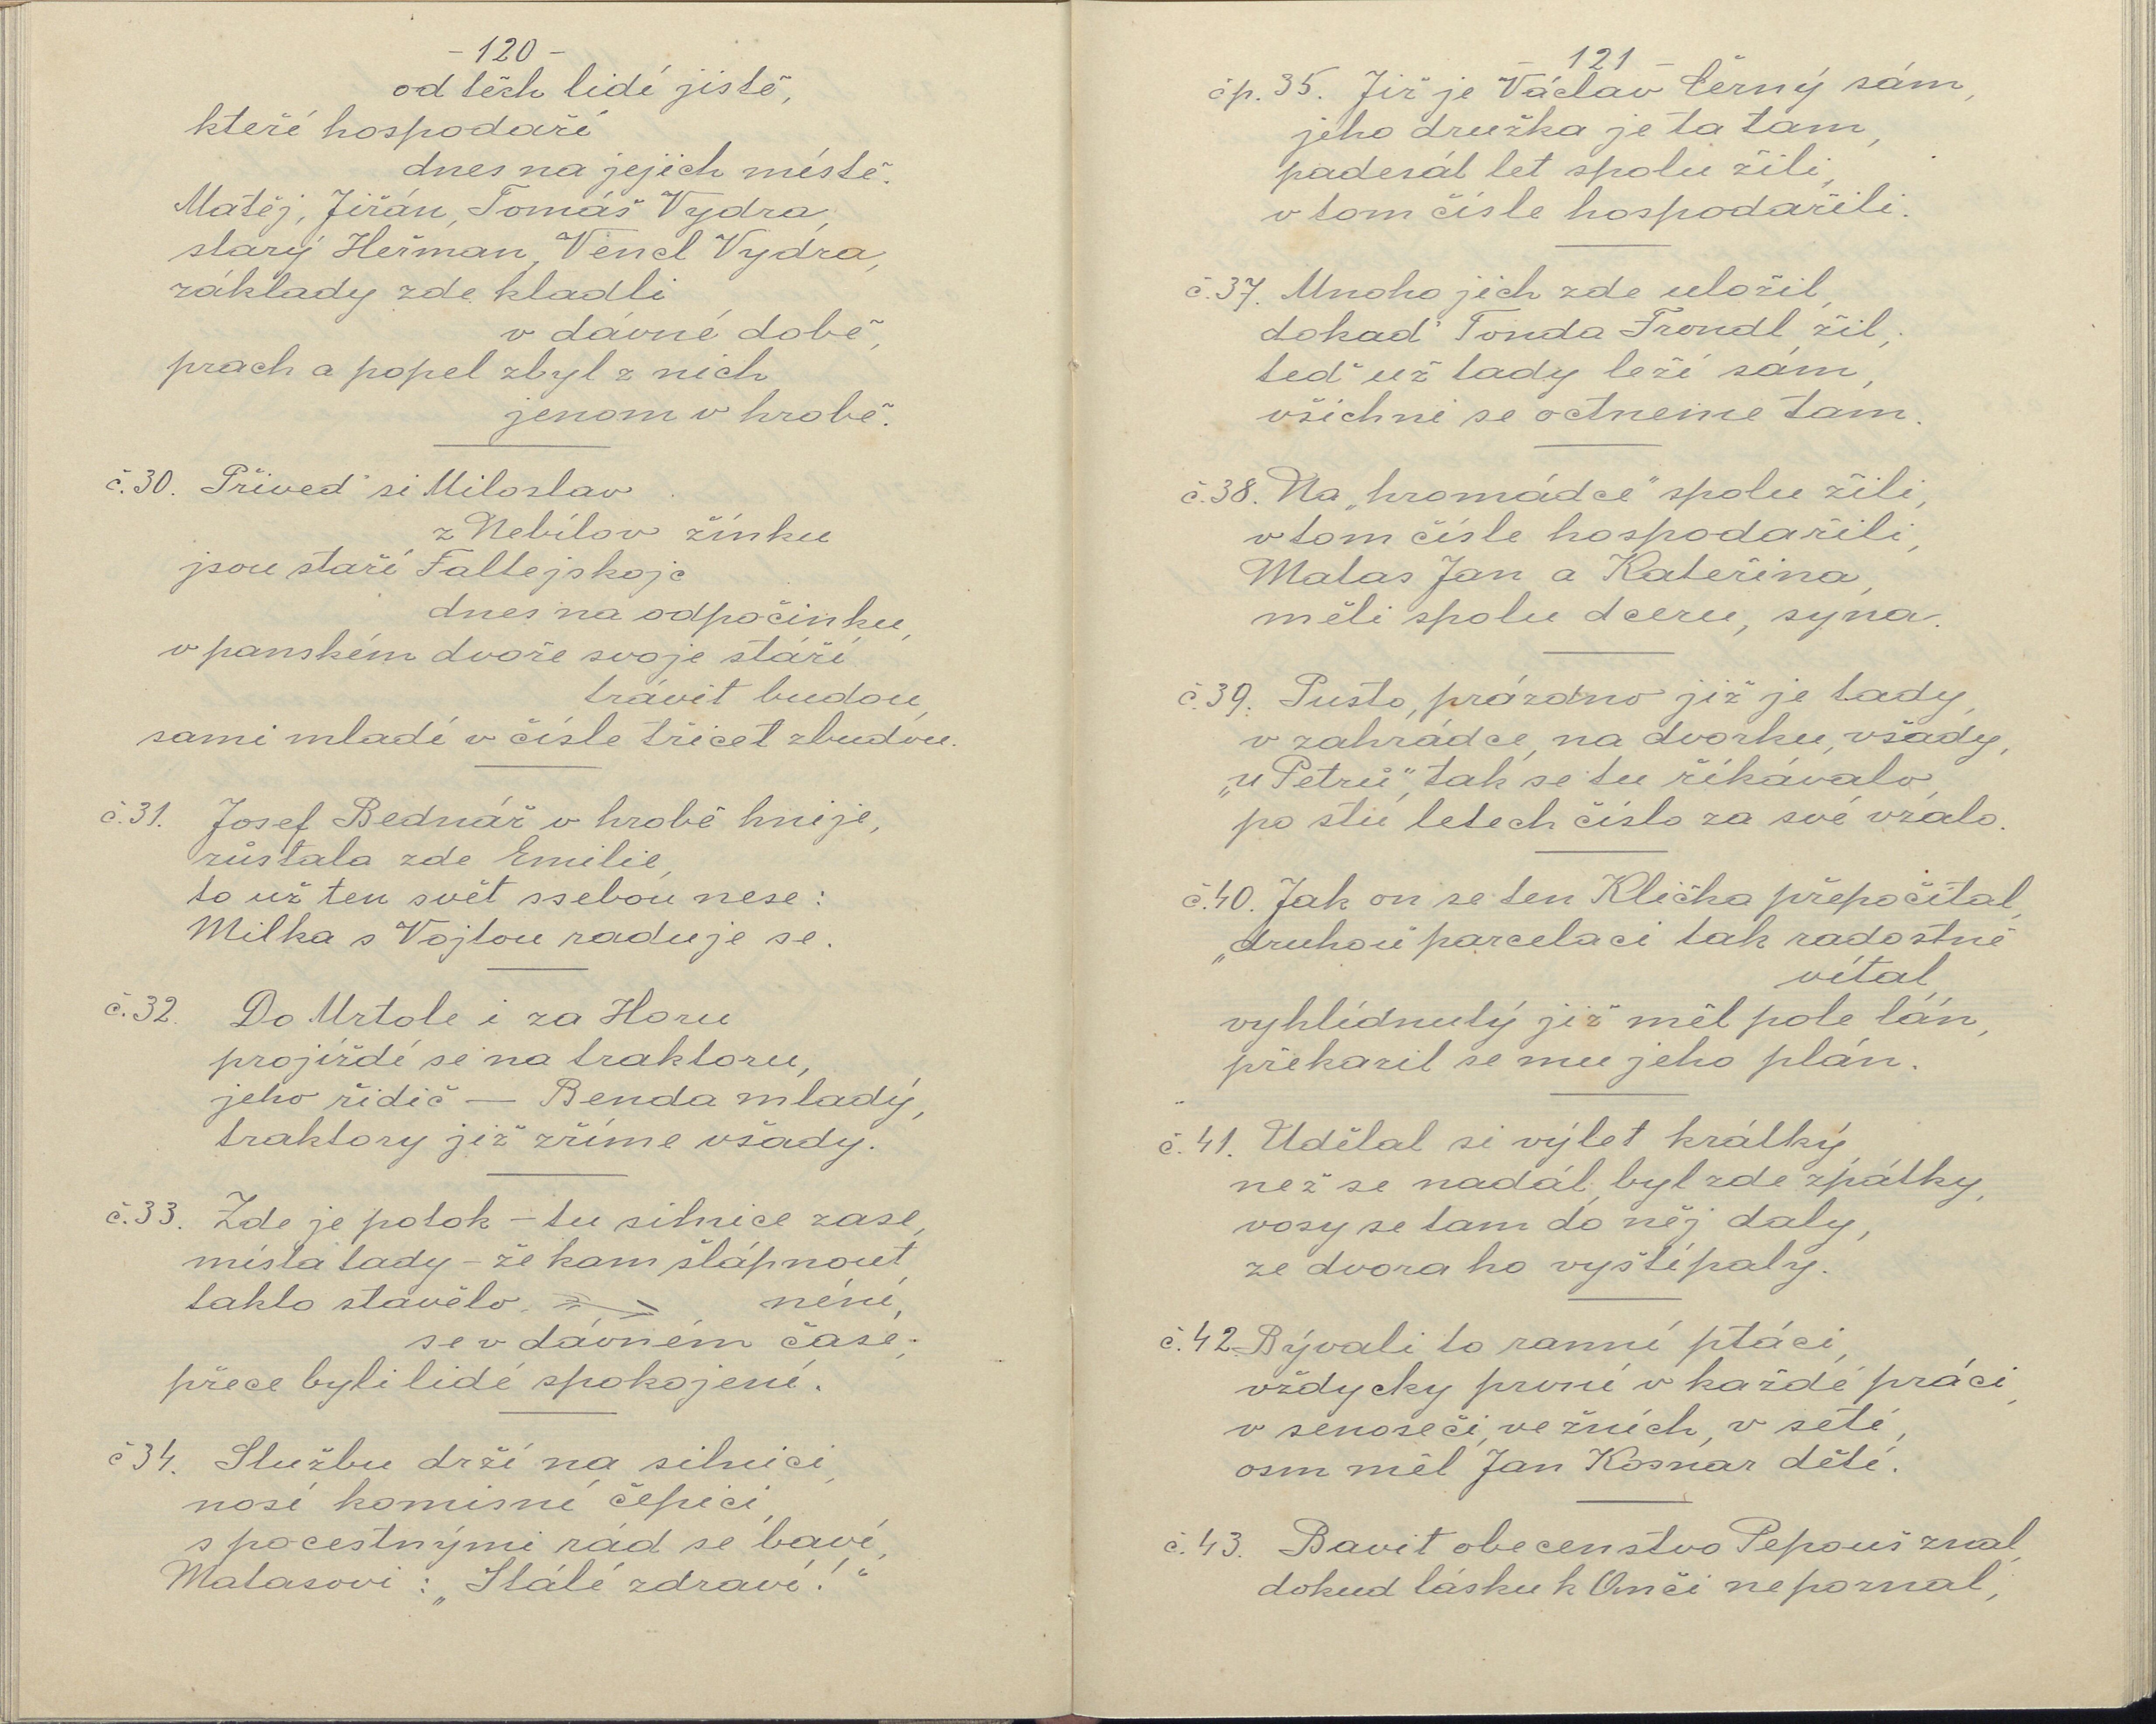 - 120 -
od těch lidí jistě,
kteří hospodaří
dnes na jejich místě.
Matěj, Jiřán, Tomáš Vydra,
starý Heřman, Vencl Vydra,
základy zde kladli
v dávné době,
prach a popel zbyl z nich
jenom v hrobě.
č.30. Přived' si Miloslav
z Nebílov žínku
jsou staří Faltejskojc
dnes na odpočinku,
v panském dvoře svoje stáří
trávit budou,
sami mladí v čísle třicet zbudou.
č.31. Josef Bednář v hrobě hnije,
zůstala zde Emilie,
to už ten svět ssebou nese:
Milka s Vojtou raduje se.
č.32. Do Mrtole i za Horu
projíždí se na traktoru,
jeho řidič — Benda mladý,
traktory již zříme všady.
č.33. Zde je potok - tu silnice zase,
místa tady - že kam šlápnout
není,
takto stavělo
se v dávném čase;
přece byli lidé spokojení.
č34. Službu drží na silnici,
nosí komisní čepici,
s pocestnými rád se baví,
Matasovi: „Stálé zdraví!“
- 121 -
čp. 35. Již je Václav Černý sám,
jeho družka je ta tam,
padesát let spolu žili,
v tom čísle hospodařili.
č.37. Mnoho jich zde uložil,
dokad' Tonda Trondl žil,
teď už tady leží sám,
všichni se octneme tam.
č.38. Na „hromádce“ spolu žili,
v tom čísle hospodařili,
Matas Jan a Kateřina,
měli spolu dceru, syna.
č.39. Pusto, prázdno již je tady,
v zahrádce, na dvorku, všady,
„u Petrů“, tak se tu říkávalo,
po stu letech číslo za své vzalo.
č.40. Jak on se ten Klička přepočítal,
„druhou“ parcelaci tak radostně
vítal,
vyhlídnutý již měl pole lán,
překazil se mu jeho plán.
č.41. Udělal si výlet krátký,
než se nadál, byl zde zpátky,
vosy se tam do něj daly,
ze dvora ho vyštípaly.
č.42. Bývali to ranní ptáci,
vždycky první v každé práci,
v senoseči, ve žních, v setí,
osm měl Jan Kosnar dětí.
č.43. Bavit obecenstvo Pepouš znal,
dokud lásku k Anči nepoznal,